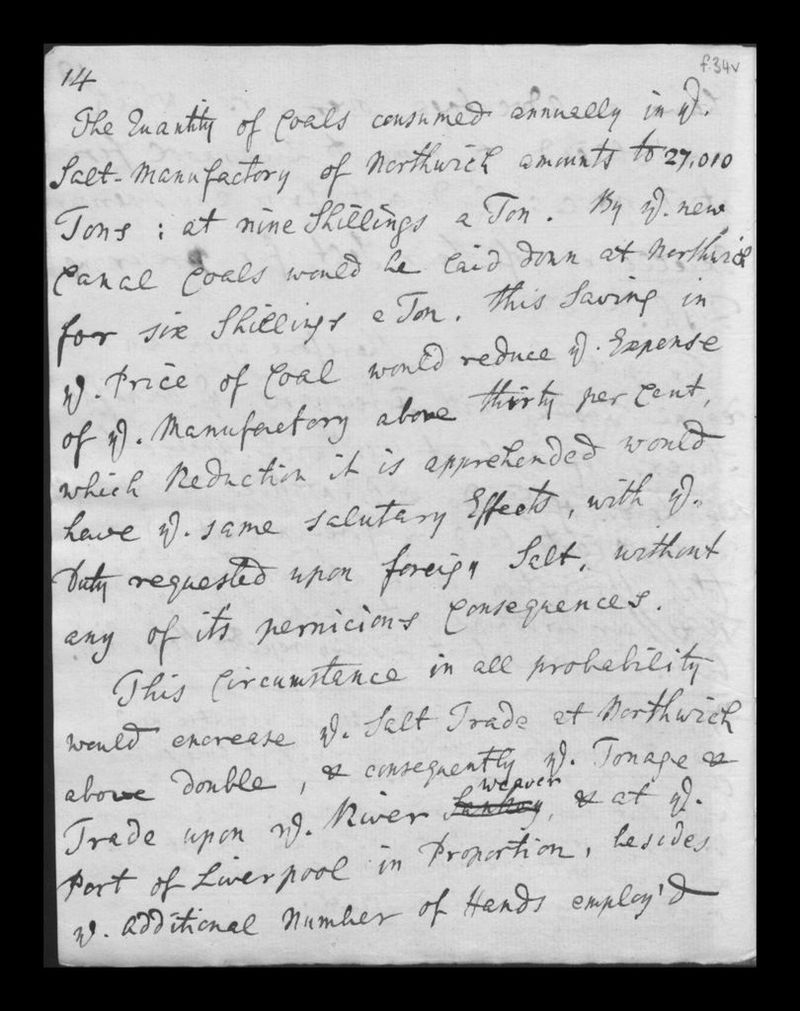 14
f.34v
The Quantity of Coals consumed annually in yͤ.
Salt-Manufactory of Northwich amounts to 27,010
Tons ; at nine Shillings a Ton. By yͤ. new
Canal Coals would be laid down at Northwich
for six Shillings a Ton. this Saving in
yͤ. Price of Coal would reduce yͤ. Expense
of yͤ. Manufactory above thirty per Cent,
which Reduction it is apprehended would
have yͤ. same salutary Effects, with yͤ.
Duty requested upon foreign Salt, without
any of its pernicious Consequences.
This Circumstance in all probability
would encrease yͤ. Salt Trade at Northwich
above double, & consequently yͤ. Tonage &
weaver
Trade upon yͤ. River Sankey, & at yͤ.
Port of Liverpool in Proportion, besides
yͤ. additional Number of Hands employ'd